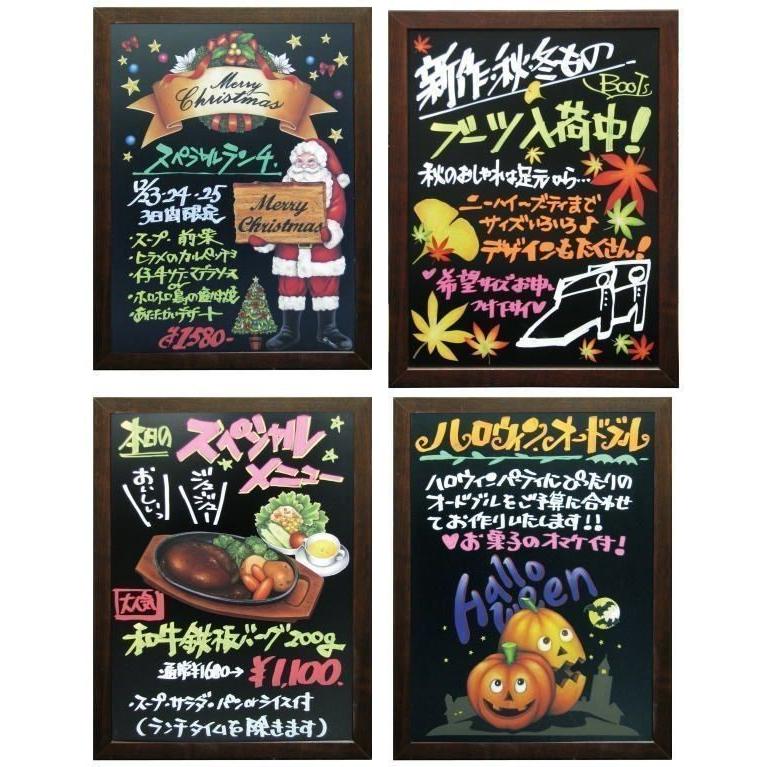 Merry
Christmas
スペシャルランチ
12/23・24・25
3日間限定
・スープ・前菜
・ヒラメのカルパッチョ
or
・あたたかいデザート
¥1580-
Merry
Christmas
新作・秋・冬もの
BOOTS
ブーツ入荷中!
秋のおしゃれは足元から…
ニーハイ〜ブーティまで
サイズいろいろ♪
デザインもたくさん!
♥希望サイズお申し
つけ下サイ♥
本日の
スペシャル
メニュー
おいしいっ
ジュージュー
大人気
和牛鉄板バーグ200g
通常¥1680→¥1,100.
・スープ・サラダ・パンorライス付
(ランチタイムを除きます)
ハロウィン・オードブル
ハロウィンパーティにぴったりの
オードブルをご予算に合わせ
てお作りいたします!!
♥お菓子のオマケ付!
Hallo
ween